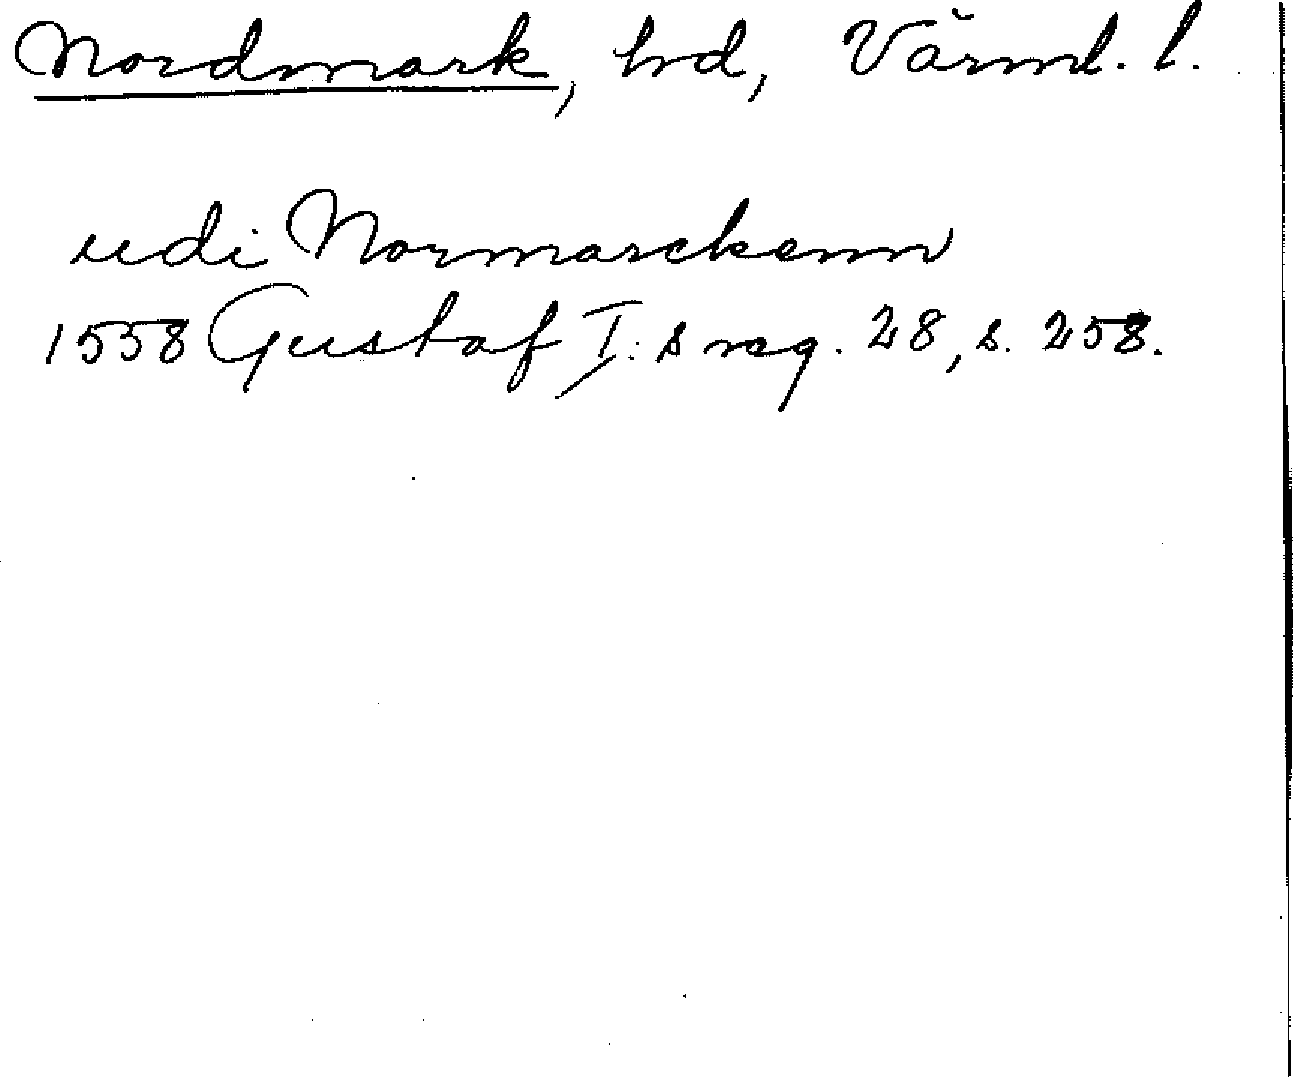 Nordmark, hd, Värml. l.
udi Normarckenn
1558 Gustaf I:s reg. 28, s. 258.